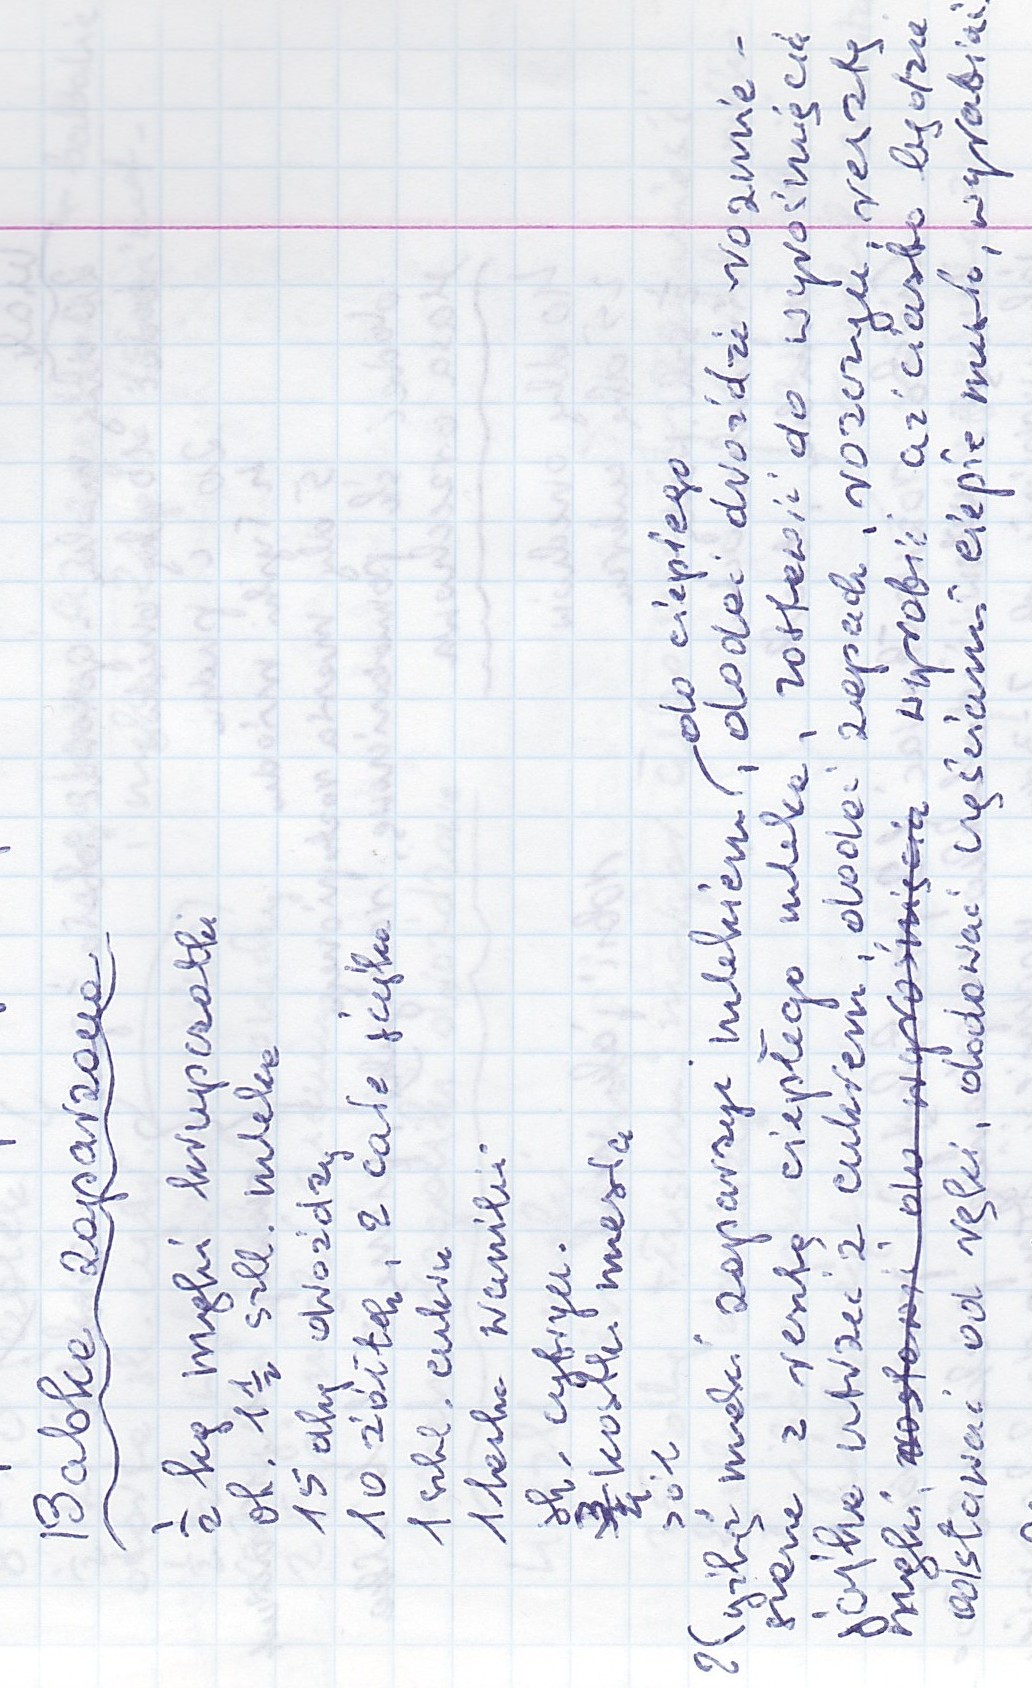 Babka zaparzana
1/2 kg mąki krupczatki
ok. 1 1/2 szkl. mleka
15 dkg drożdży
10 żółtek, 2 całe jajka
1 szkl. cukru
1 laska wanilii
sk. cytryn.
3/4 kostki masła
sól
do ciepłego
2 łyżki mąki zaparzyć mlekiem, dodać drożdże rozmie-
szane z resztą ciepłego mleka, zostawić do wyrośnięcia
jajka utrzeć z cukrem, dodać zapach, rozczyn, resztę
mąki, zostawić do wyrośnięcia wyrobić aż ciasto będzie
odstawać od ręki, dodawać częściami ciepłe masło, wyrabiać